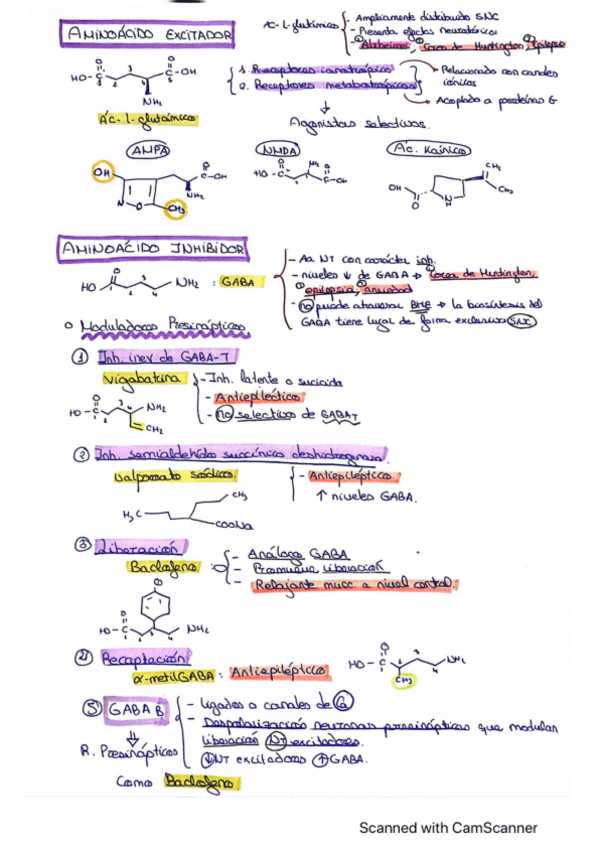 AMINOÁCIDO EXCITADOR
Ac-l-glutámico
- Ampliamente distribuido SNC
- Presenta efectos neurotóxicos:
① Alzheimer, ② Corea de Huntington, ③ Epilepsia
HO-C C-OH
O O
NH₂
Ác-l-glutámico
1. Receptores ionotrópicos → Relacionado con canales iónicos
2. Receptores metabotrópicos → Acoplado a proteínas G
↓
Agonistas selectivos.
AMPA NMDA Ác. Kaínico
OH N O CH₃ NH₂ C-OH
HO-C NH₂ C-OH
OH O N H CH₂ CH₃
AMINOÁCIDO INHIBIDOR
HO O 2 3 4 NH₂ : GABA
- Aa NT con carácter inh.
- niveles ↓ de GABA → Corea de Huntington,
epilepsia; ansiedad
- no puede atravesar BHE → la biosíntesis del
GABA tiene lugar de forma exclusiva SNC
o Moduladores Presinápticos
① Inh. irrev de GABA-T
Vigabatrina
- Inh. latente o suicida
- Antiepiléptico
- no selectivo de GABA T
HO-C O 2 3 4 NH₂
CH₂
② Inh. semialdehído succínico deshidrogenasa
valproato sódico
- Antiepiléptico.
↑ niveles GABA.
CH₃
H₃C
COONa
③ Liberación
Baclofeno
- Análogo GABA
- Promueve liberación
- Relajante musc a nivel central.
HO-C O 2 3 4 NH₂
④ Recaptación
α-metilGABA: Antiepiléptico
HO-C O 2 3 4 NH₂
CH₃
⑤ GABA B
- ligados a canales de Ca
- Despolarización neuronas presinápticas que modulan
liberación NT excitadores.
↓NT excitadores ↑GABA.
R. Presinápticos
Como Baclofeno
Scanned with CamScanner